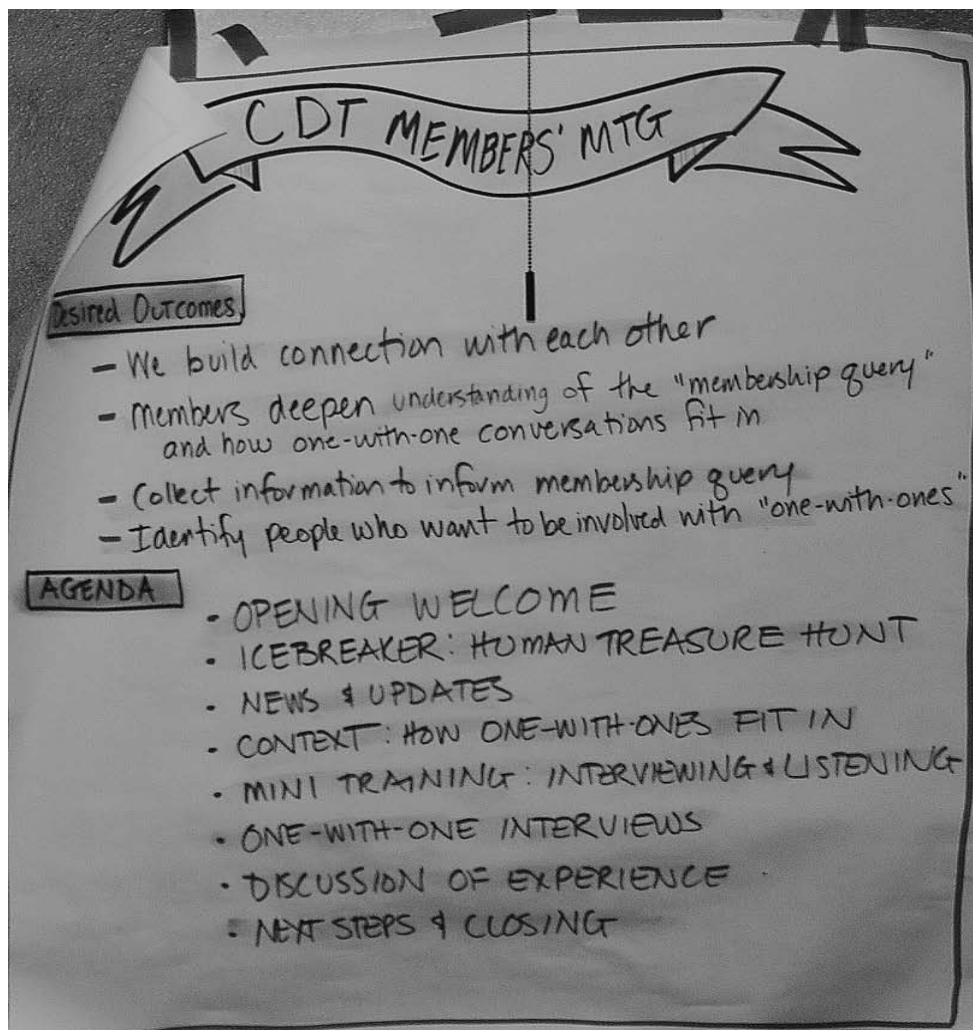 CDT MEMBERS' MTG
Desired Outcomes
- We build connection with each other
- Members deepen understanding of the "membership query"
and how one-with-one conversations fit in
- Collect information to inform membership query
- Identify people who want to be involved with "one-with-ones"
AGENDA
• OPENING WELCOME
• ICEBREAKER: HUMAN TREASURE HUNT
• NEWS & UPDATES
• CONTEXT: HOW ONE-WITH-ONES FIT IN
• MINI TRAINING: INTERVIEWING & LISTENING
• ONE-WITH-ONE INTERVIEWS
• DISCUSSION OF EXPERIENCE
• NEXT STEPS & CLOSING